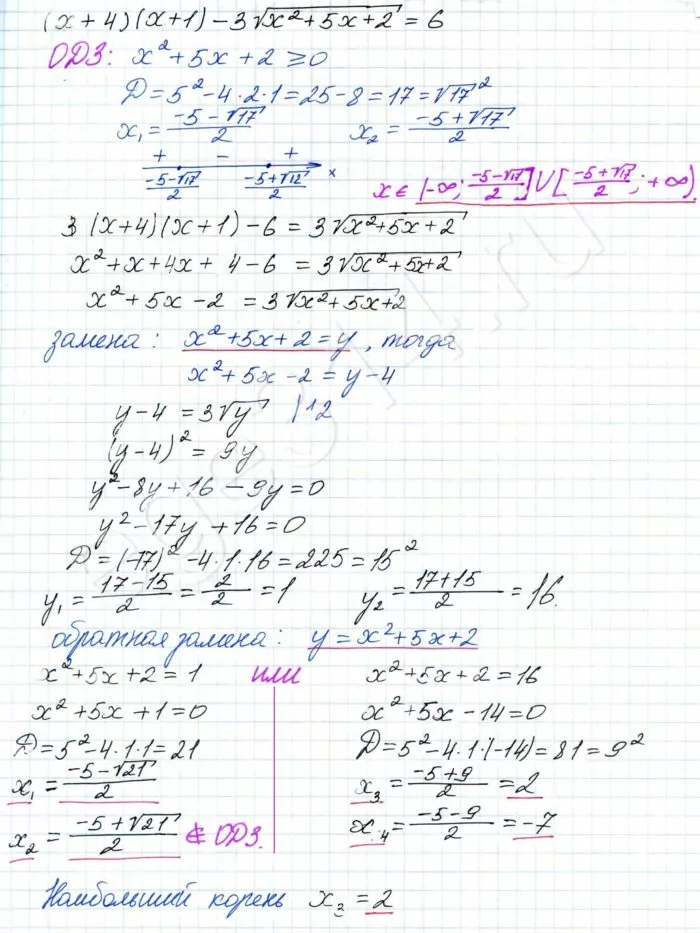 (x+4)(x+1)-3√(x²+5x+2) = 6
ОДЗ: x²+5x+2 ≥0
Д=5²-4·2·1=25-8=17=√17²
x₁= (-5-√17)/2 x₂= (-5+√17)/2
+ - +
(-5-√17)/2 (-5+√12)/2 x
x∈ (-∞; (-5-√17)/2]∪[(-5+√17)/2; +∞)
3 (x+4)(x+1)-6 = 3√(x²+5x+2)
x²+x+4x+ 4-6 = 3√(x²+5x+2)
x²+5x-2 = 3√(x²+5x+2)
замена: x²+5x+2=y, тогда
x²+5x-2=y-4
y-4=3√y |^2
(y-4)²= 9y
y²-8y+16-9y=0
y²-17y+16=0
Д=(-17)²-4·1·16=225=15²
y₁= (17-15)/2 = 2/2 =1 y₂= (17+15)/2 =16.
обратная замена: y=x²+5x+2
x²+5x+2=1 или x²+5x+2=16
x²+5x+1=0 x²+5x-14=0
Д=5²-4·1·1=21 Д=5²-4·1·(-14)=81=9²
x₁= (-5-√21)/2 x₃= (-5+9)/2 =2
x₂= (-5+√21)/2 ∉ ОДЗ. x₄= (-5-9)/2 =-7
Наибольший корень x₃=2